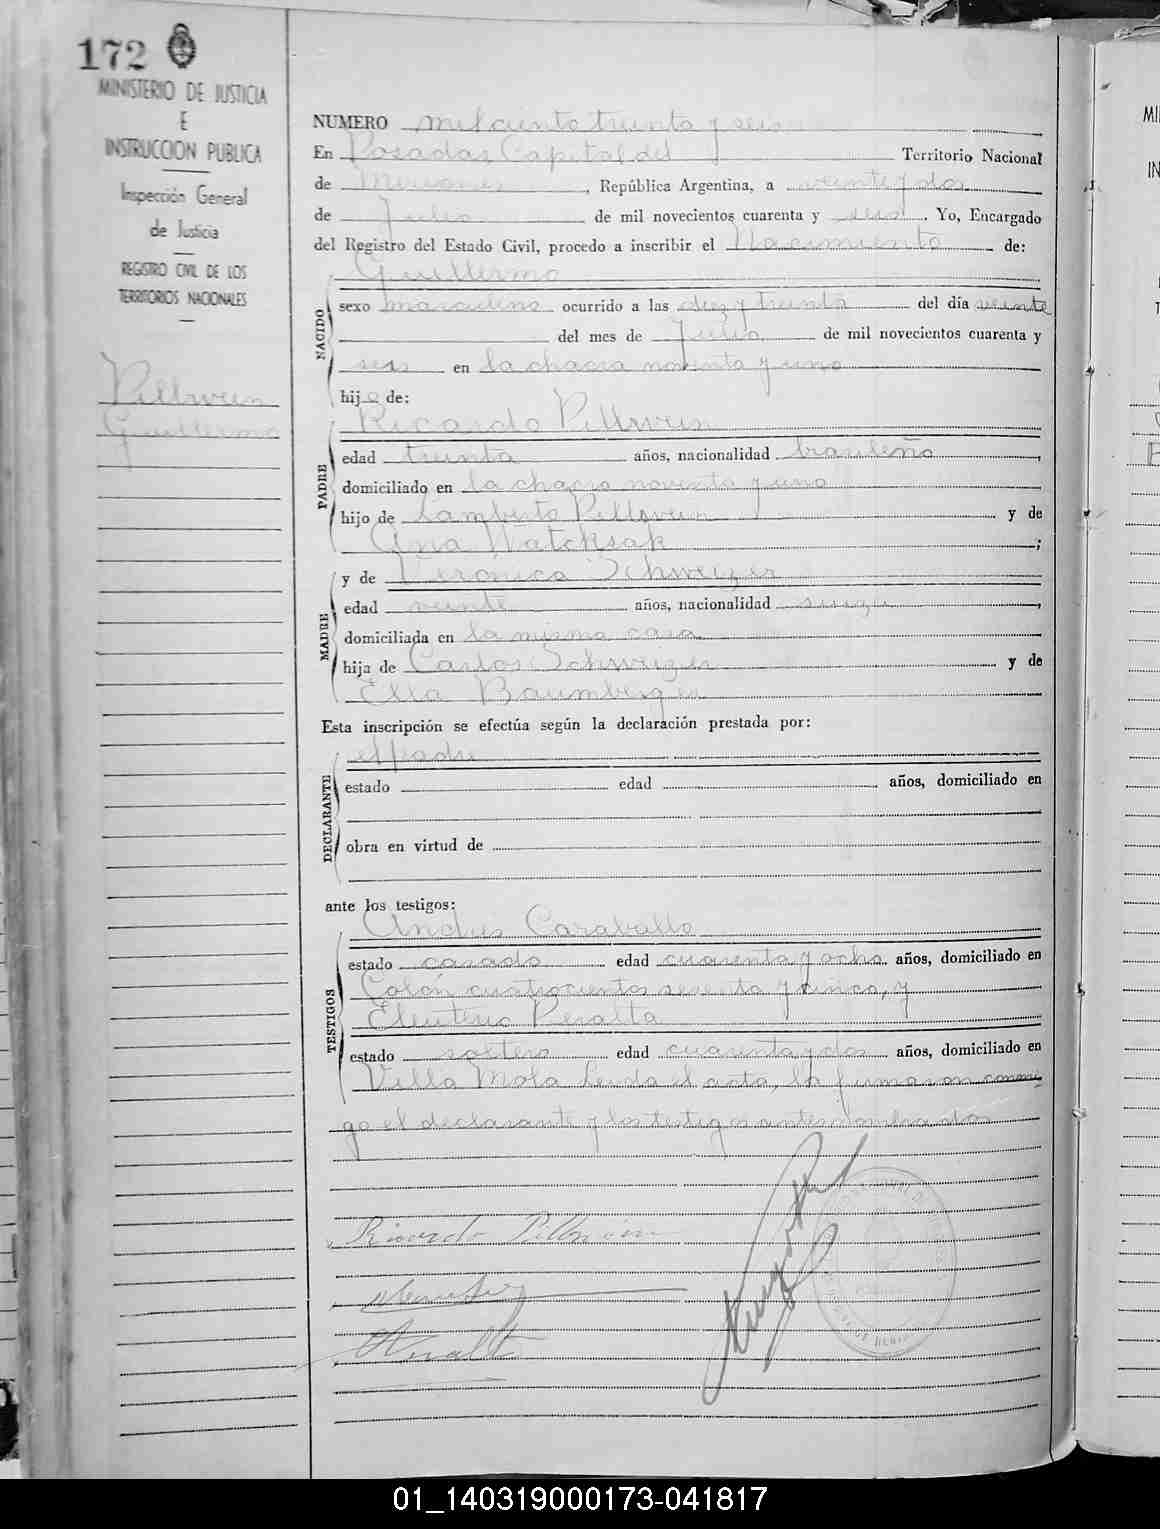 172
MINISTERIO DE JUSTICIA
E
INSTRUCCION PUBLICA
Inspección General
de Justicia
REGISTRO CIVIL DE LOS
TERRITORIOS NACIONALES
Pillwein
Guillermo
NUMERO mil ciento treinta y seis
En Posadas Capital del Territorio Nacional
de Misiones, República Argentina, a veinte y dos
de Julio de mil novecientos cuarenta y seis. Yo, Encargado
del Registro del Estado Civil, procedo a inscribir el Nacimiento de:
Guillermo
NACIDO
sexo masculino ocurrido a las diez y treinta del día veinte
del mes de Julio de mil novecientos cuarenta y
seis en la chacra noventa y uno
hijo de:
Ricardo Pillwein
PADRE
edad treinta años, nacionalidad brasileño,
domiciliado en la chacra noventa y uno
hijo de Lamberto Pillwein y de
Ana Watcksak;
MADRE
y de Veronica Schweizer
edad veinte años, nacionalidad suiza,
domiciliada en la misma casa
hija de Carlos Schweizer y de
Ella Baumberger
Esta inscripción se efectúa según la declaración prestada por:
DECLARANTE
el padre
estado edad años, domiciliado en
obra en virtud de
ante los testigos:
TESTIGOS
Andrés Caraballo
estado casado edad cuarenta y ocho años, domiciliado en
Colón cuatrocientos sesenta y cinco, y
Eleuterio Peralta
estado soltero edad cuarenta y dos años, domiciliado en
Villa Mola Leida el acta, la firmaron conmi
go el declarante y los testigos antes nombrados
Ricardo Pillwein
01_140319000173-041817